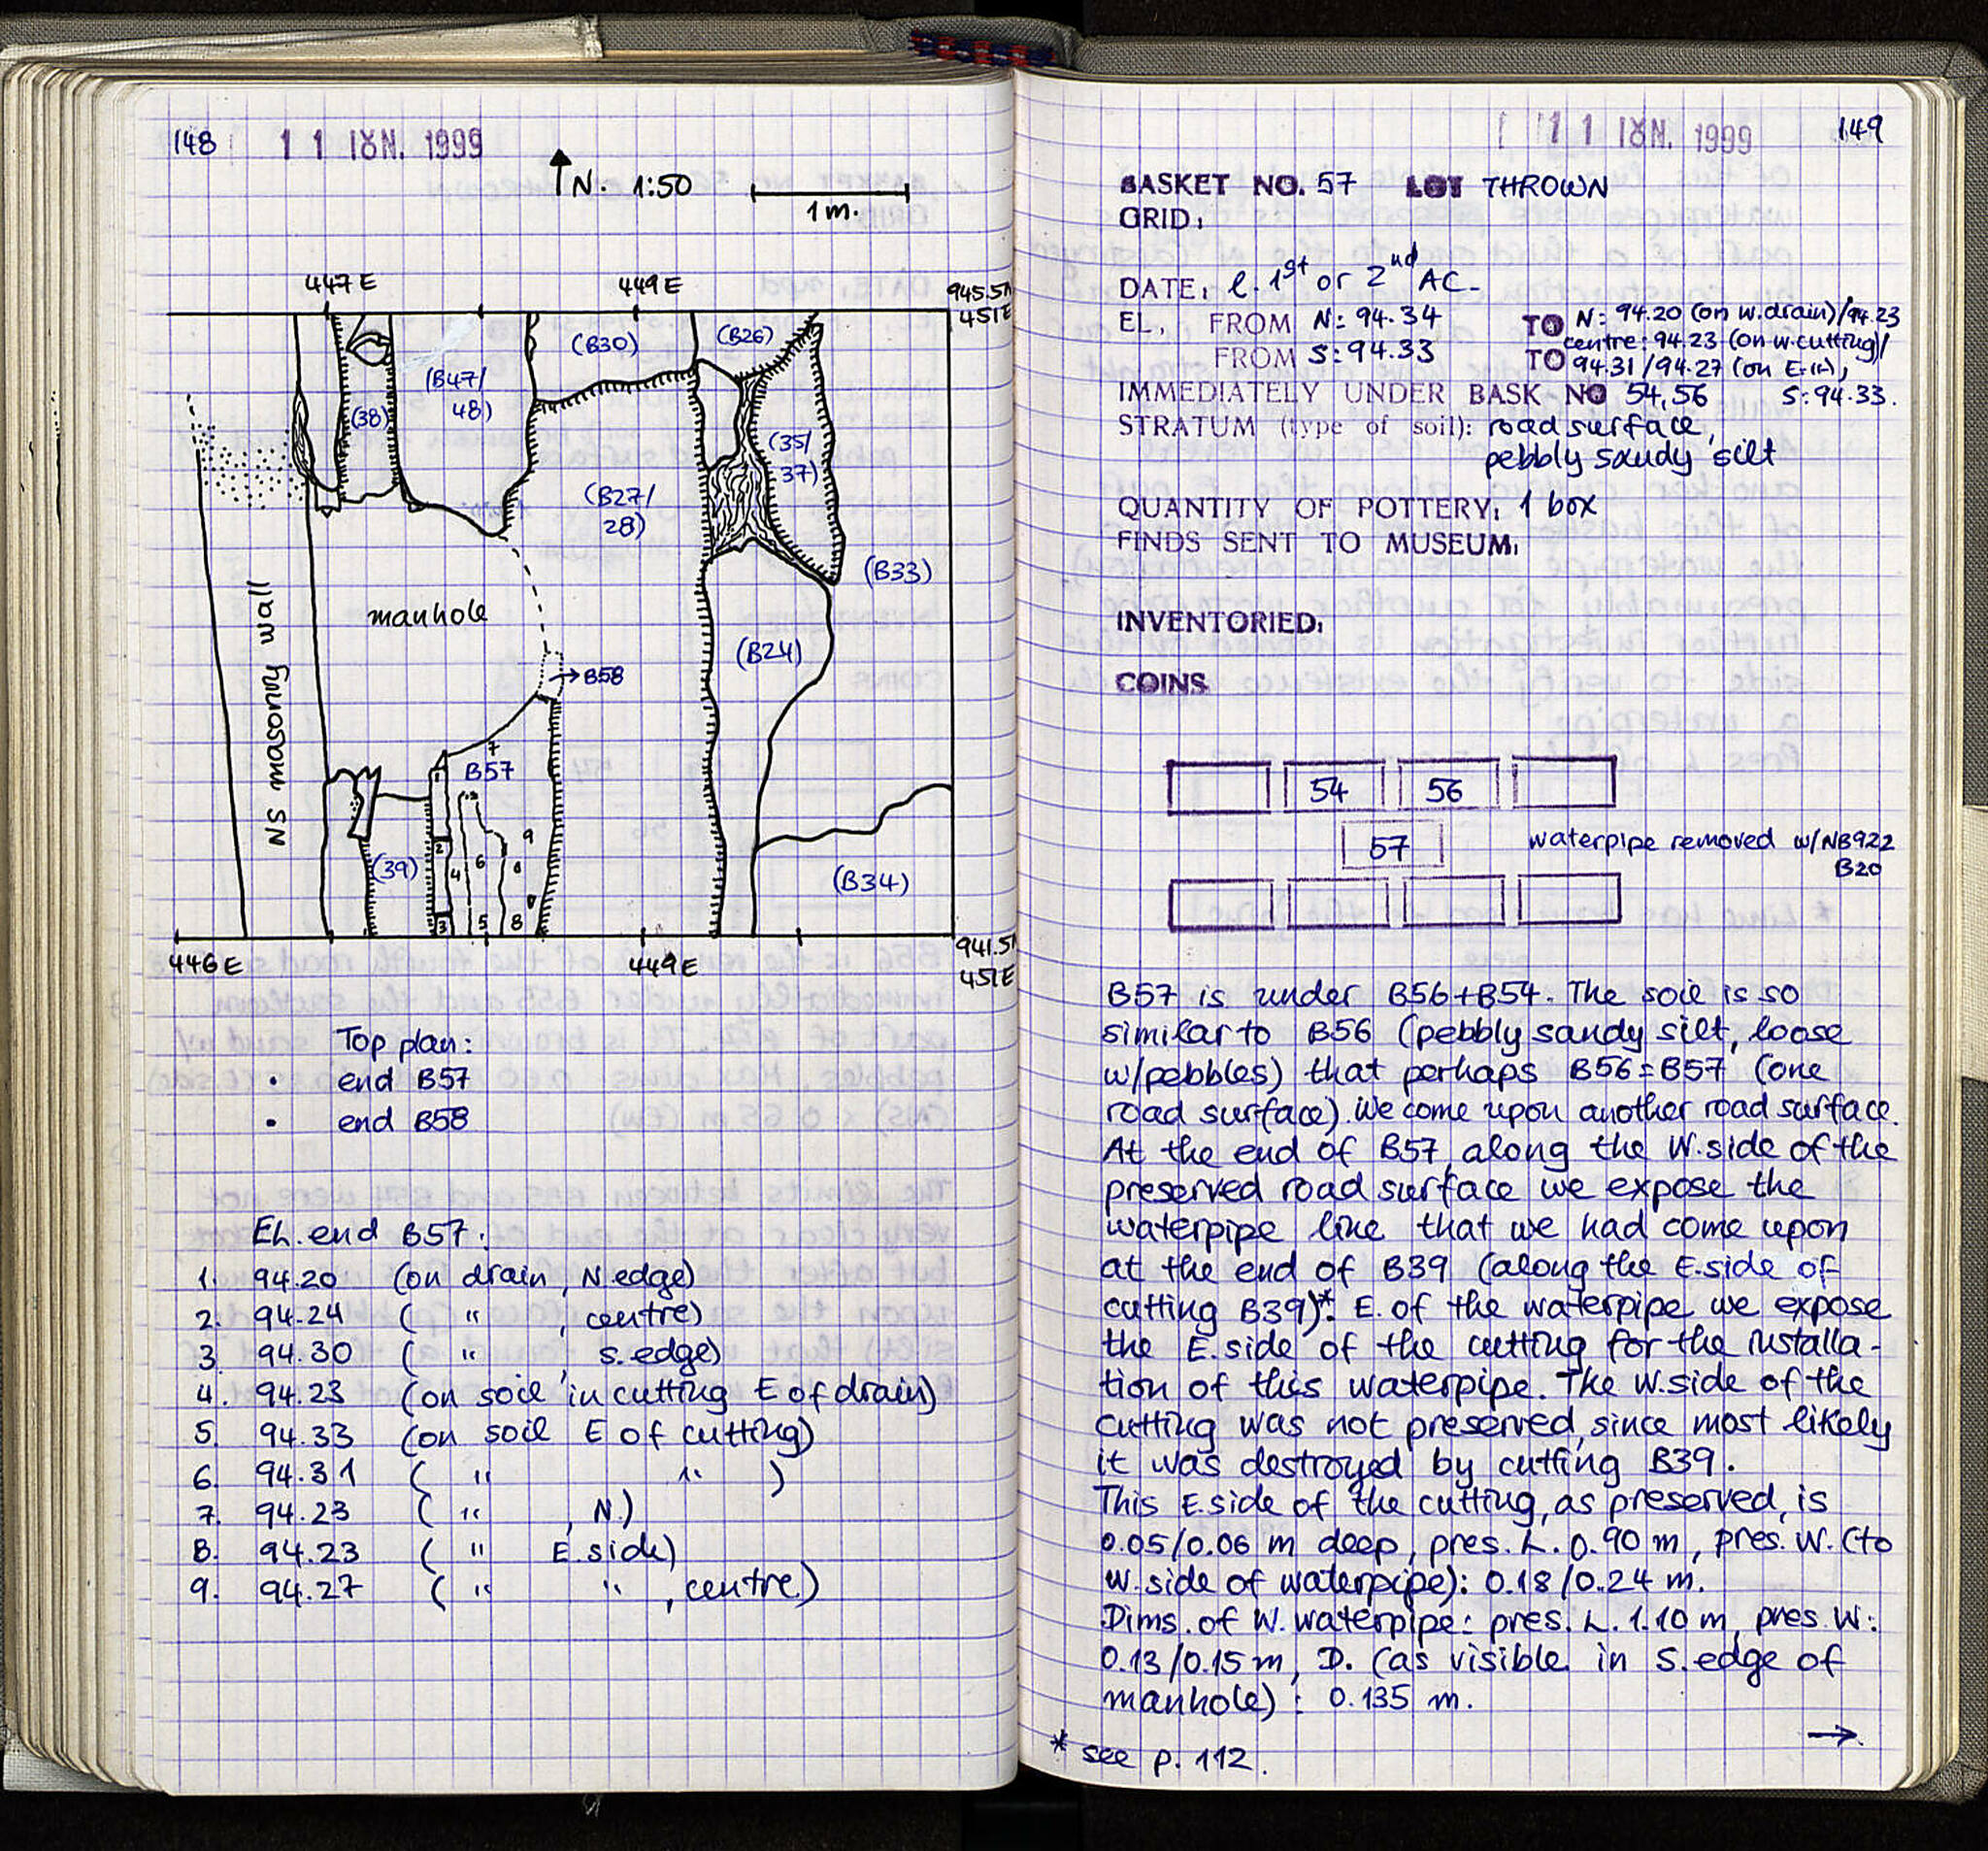 148
1 1 ΙΟΥΝ. 1999
N. 1:50
1m.
447 E
449 E
945.5N
451E
(B30)
(B26)
(B47/
48)
(38)
(35/
37)
(B27/
28)
(B33)
NS masonry wall
manhole
(B24)
→B58
7
B57
1
9
2
(39)
4
6
(B34)
3
5
8
446 E
449 E
941.5N
451E
Top plan:
• end B57
• end B58
EL. end B57:
1. 94.20 (on drain, N.edge)
2. 94.24 ( " , centre)
3 94.30 ( " , s.edge)
4. 94.23 (on soil in cutting E of drain)
5. 94.33 (on soil E of cutting)
6. 94.31 ( " " )
7. 94.23 ( " , N.)
8. 94.23 ( " E.side)
9. 94.27 ( " " , centre)
1 1 ΙΟΥΝ. 1999
149
BASKET NO. 57 LOT THROWN
GRID:
DATE: l. 1st or 2nd AC.
EL. FROM N: 94.34 TO N: 94.20 (on w.drain)/94.23
centre: 94.23 (on w.cutting)/
FROM S: 94.33 TO 94.31/94.27 (on E.),
IMMEDIATELY UNDER BASK NO 54,56 S: 94.33.
STRATUM (type of soil): road surface,
pebbly sandy silt
QUANTITY OF POTTERY: 1 box
FINDS SENT TO MUSEUM:
INVENTORIED:
COINS
54 56
57
waterpipe removed w/NB922
B20
B57 is under B56+B54. The soil is so
similar to B56 (pebbly sandy silt, loose
w/pebbles) that perhaps B56=B57 (one
road surface). We come upon another road surface.
At the end of B57, along the W.side of the
preserved road surface we expose the
waterpipe line that we had come upon
at the end of B39 (along the E.side of
cutting B39)*. E. of the waterpipe we expose
the E.side of the cutting for the installa-
tion of this waterpipe. The W.side of the
cutting was not preserved, since most likely
it was destroyed by cutting B39.
This E.side of the cutting, as preserved, is
0.05/0.06 m deep, pres. L. 0.90 m, pres. W. (to
W.side of waterpipe): 0.18/0.24 m.
Dims. of W. waterpipe: pres. L. 1.10 m, pres. W:
0.13/0.15 m, D. (as visible in S.edge of
manhole): 0.135 m.
→
* see p. 112.